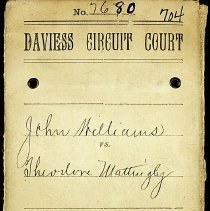 No. 7680 704
DAVIESS CIRCUIT COURT
John Williams
vs.
Theodore Mattingly